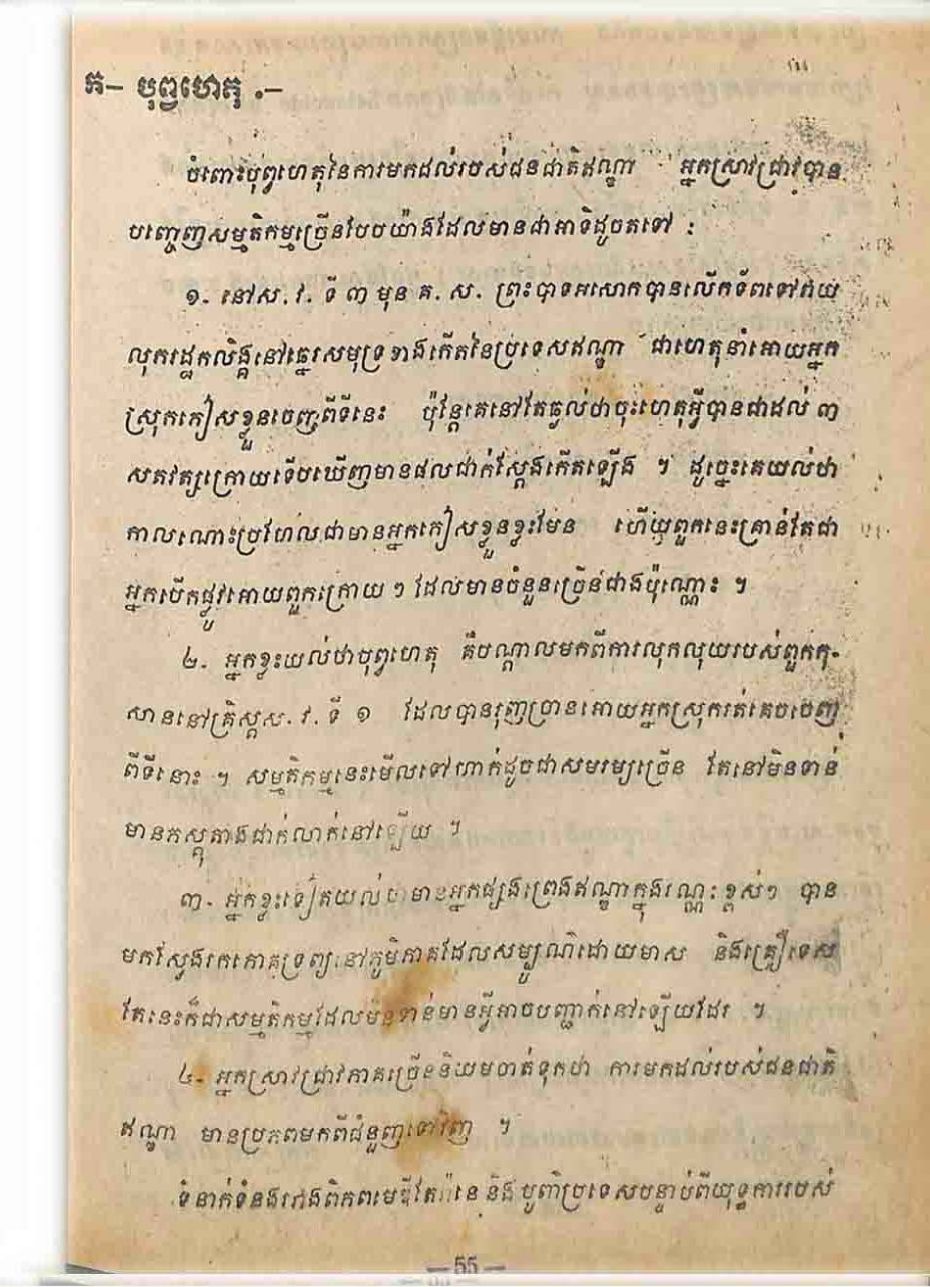 ក– បុព្វហេតុ .–
ចំពោះបុព្វហេតុនៃការមកដល់របស់ជនជាតិឥណ្ឌា អ្នកស្រាវជ្រាវបាន
បញ្ចេញសម្មតិកម្មច្រើនបែបយ៉ាងដែលមានជាអាទិដូចតទៅ :
១- នៅស.វ. ទី ៣ មុន គ.ស. ព្រះបាទអសោកបានលើកទ័ពទៅវាយ
លុករដ្ឋកលិង្គនៅឆ្នេរសមុទ្រខាងកើតនៃប្រទេសឥណ្ឌា ជាហេតុនាំអោយអ្នក
ស្រុកភៀសខ្លួនចេញពីទីនេះ ប៉ុន្តែគេនៅតែឆ្ងល់ថាចុះហេតុអ្វីបានជាដល់ ៣
សតវត្សក្រោយទើបឃើញមានផលជាក់ស្តែងកើតឡើង ។ ដូច្នេះគេយល់ថា
កាលណោះប្រហែលជាមានអ្នកភៀសខ្លួនខ្លះមែន ហើយពួកនេះគ្រាន់តែជា
អ្នកបើកផ្លូវអោយពួកក្រោយៗ ដែលមានចំនួនច្រើនជាងប៉ុណ្ណោះ ។
២- អ្នកខ្លះយល់ថាបុព្វហេតុ គឺបណ្តាលមកពីការលុកលុយរបស់ពួកកុ-
សាននៅគ្រិស្តស.វ. ទី ១ ដែលបានរុញច្រានអោយអ្នកស្រុករត់គេចចេញ
ពីទីនោះ ។ សម្មតិកម្មនេះមើលទៅហាក់ដូចជាសមរម្យច្រើន តែនៅមិនទាន់
មានភស្តុតាងជាក់លាក់នៅឡើយ ។
៣- អ្នកខ្លះទៀតយល់ថាមានអ្នកផ្សងព្រេងឥណ្ឌាក្នុងវណ្ណៈខ្ពស់ៗ បាន
មកស្វែងរកភោគទ្រព្យនៅភូមិភាគដែលសម្បូណ៌ដោយមាស និងគ្រឿទេស
តែនេះក៏ជាសម្មតិកម្មដែលមិនទាន់មានអ្វីអាចបញ្ជាក់នៅឡើយដែរ ។
៤- អ្នកស្រាវជ្រាវភាគច្រើននិយមចាត់ទុកថា ការមកដល់របស់ជនជាតិ
ឥណ្ឌា មានប្រភពមកពីជំនួញទៅវិញ ។
ទំនាក់ទំនងរវាងពិភពមេឌីតែរ៉ានេ និងបូព៌ាប្រទេសបន្ទាប់ពីយុទ្ធការរបស់
— 55 —